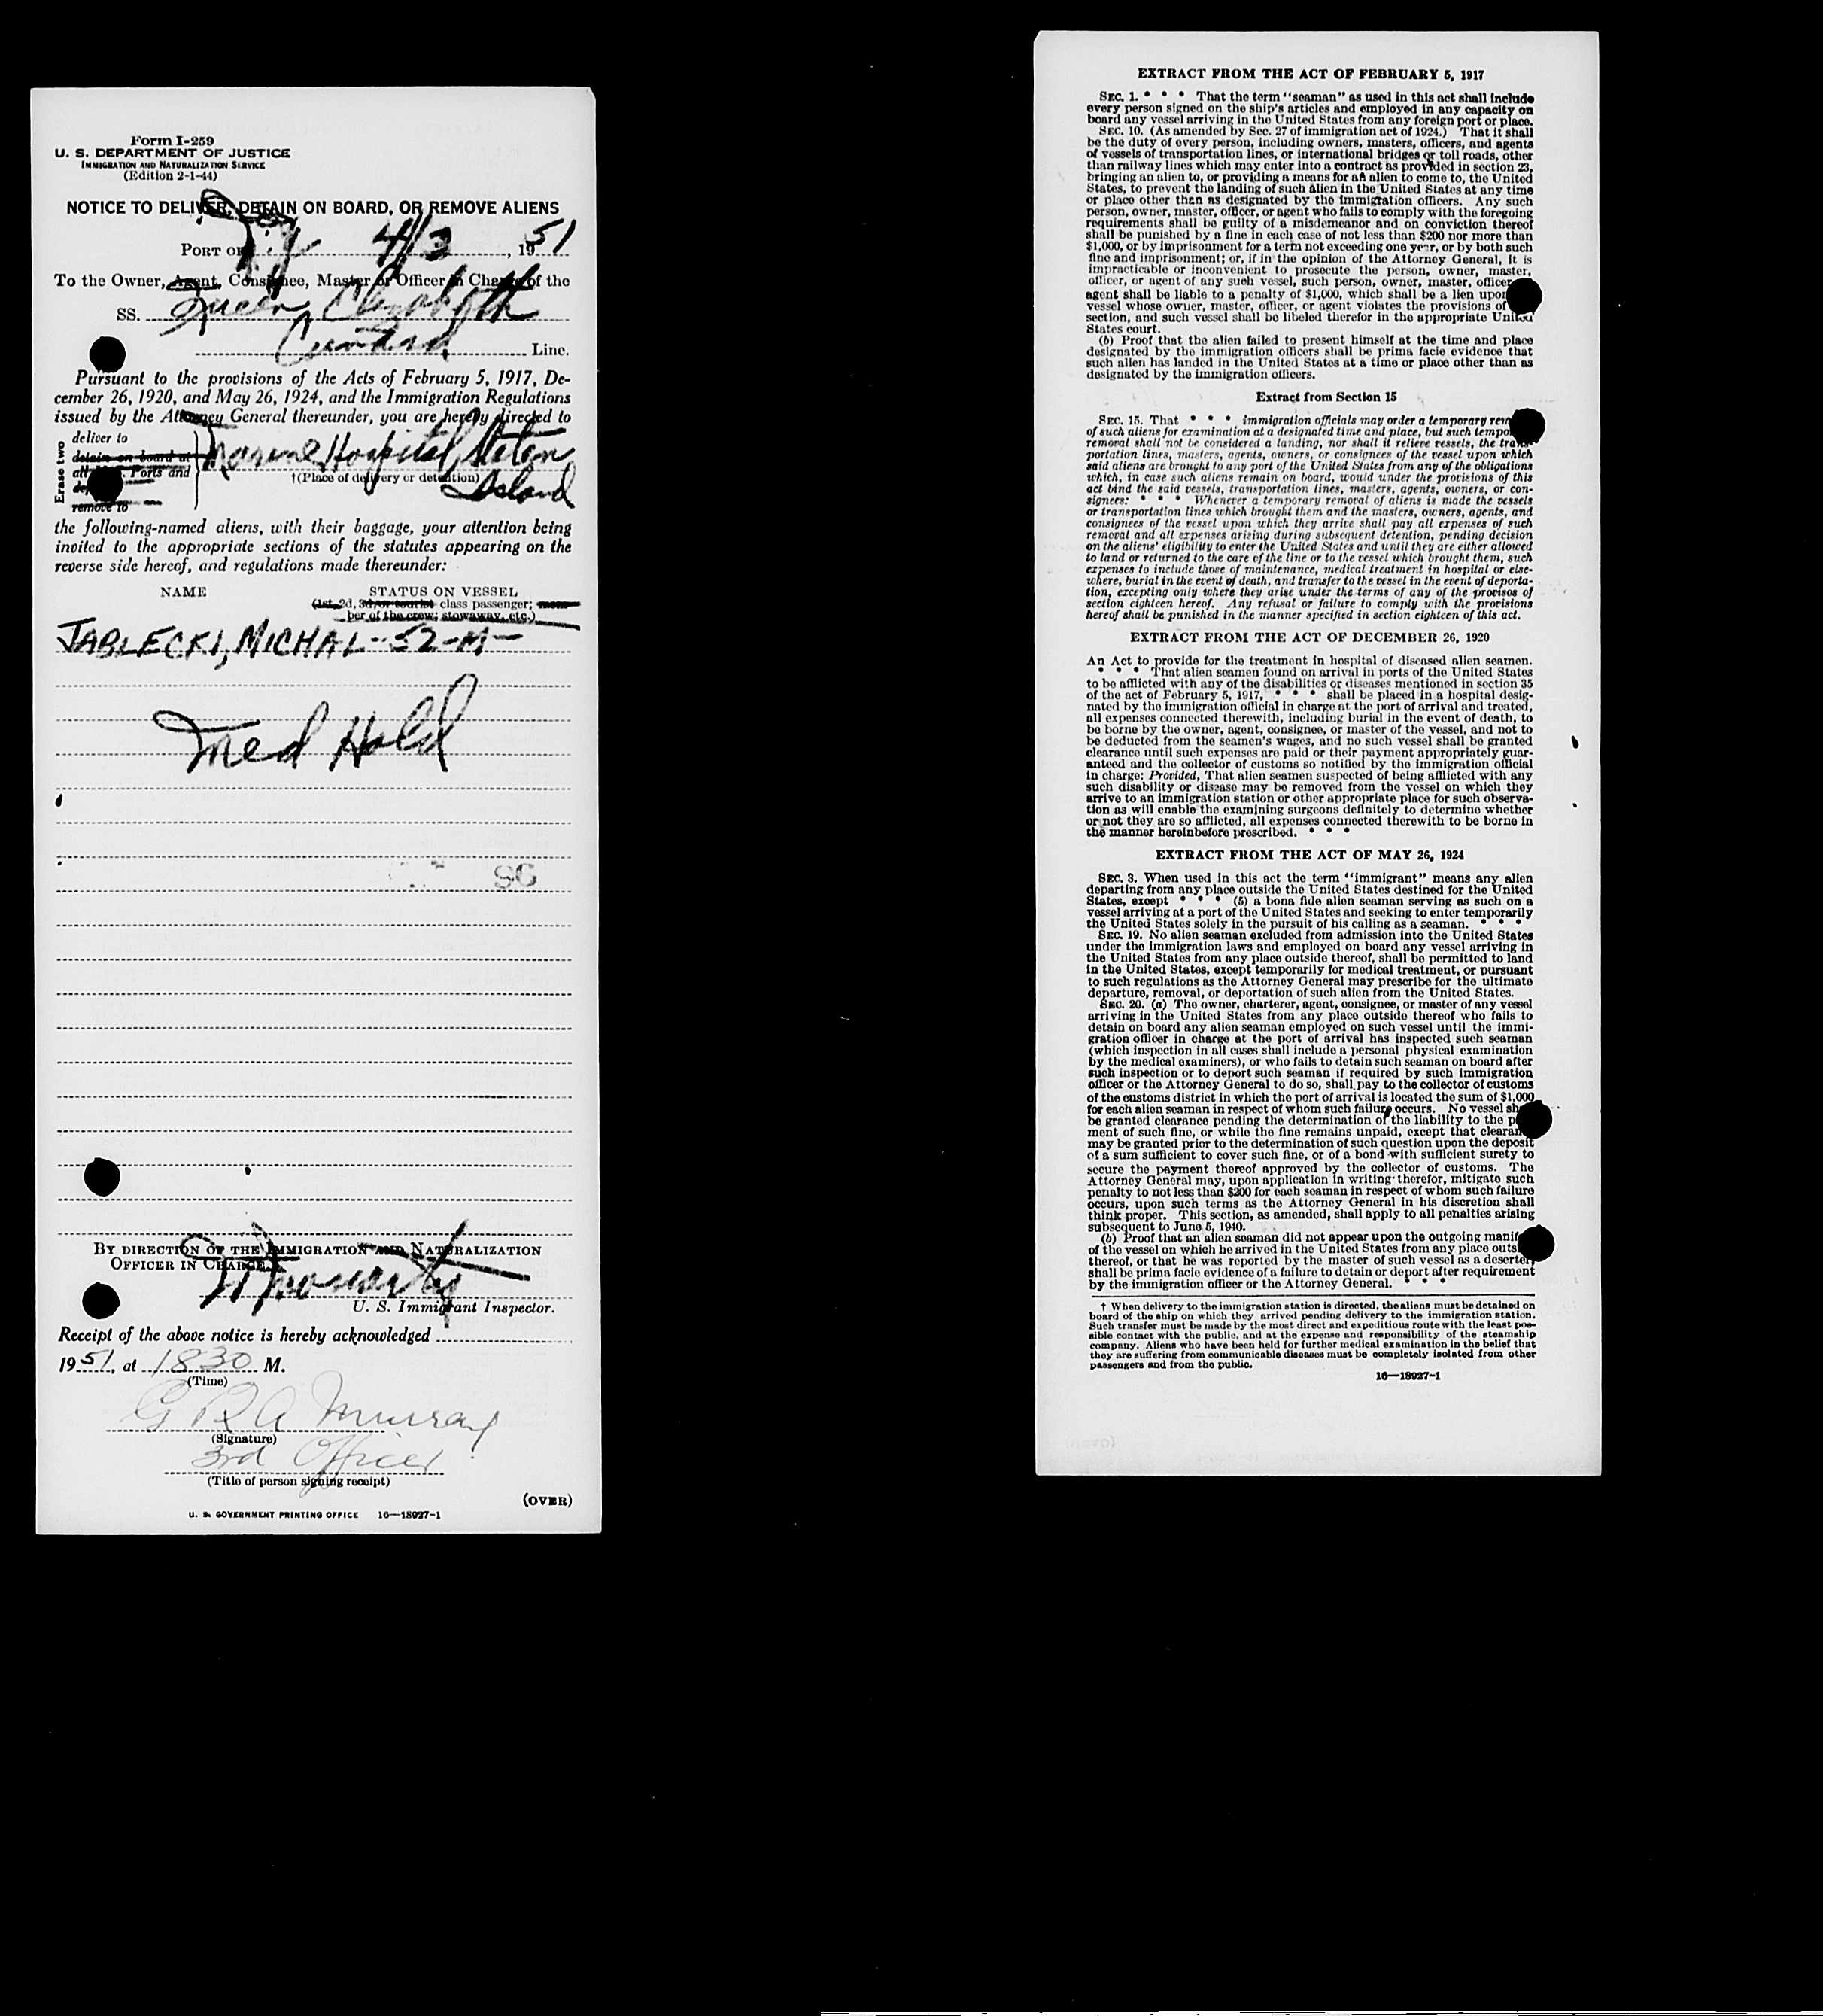 Form I-259
U. S. DEPARTMENT OF JUSTICE
IMMIGRATION AND NATURALIZATION SERVICE
(Edition 2-1-44)
NOTICE TO DELIVER, DETAIN ON BOARD, OR REMOVE ALIENS
PORT OF N.Y. 4/3, 1951
To the Owner, Agent, Consignee, Master or Officer in Charge of the
SS. Queen Elizabeth
Cunard Line.
Pursuant to the provisions of the Acts of February 5, 1917, De-
cember 26, 1920, and May 26, 1924, and the Immigration Regulations
issued by the Attorney General thereunder, you are hereby directed to
Erase two
deliver to
detain on board at
all Ports and
remove to
Marine Hospital, Staten
†(Place of delivery or detention)
Island
the following-named aliens, with their baggage, your attention being
invited to the appropriate sections of the statutes appearing on the
reverse side hereof, and regulations made thereunder:
NAME STATUS ON VESSEL
(1st, 2d, 3d, or tourist class passenger; mem-
ber of the crew; stowaway, etc.)
JABLECKI, MICHAL - 52 - M -
Med Hold
BY DIRECTION OF THE IMMIGRATION AND NATURALIZATION
OFFICER IN CHARGE
U. S. Immigrant Inspector.
Receipt of the above notice is hereby acknowledged
1951, at 1830 M.
(Time)
G R A Murray
(Signature)
3rd Officer
(Title of person signing receipt)
(OVER)
U. S. GOVERNMENT PRINTING OFFICE 16—18927-1
EXTRACT FROM THE ACT OF FEBRUARY 5, 1917
SEC. 1. * * * That the term "seaman" as used in this act shall include
every person signed on the ship's articles and employed in any capacity on
board any vessel arriving in the United States from any foreign port or place.
SEC. 10. (As amended by Sec. 27 of immigration act of 1924.) That it shall
be the duty of every person, including owners, masters, officers, and agents
of vessels of transportation lines, or international bridges or toll roads, other
than railway lines which may enter into a contract as provided in section 23,
bringing an alien to, or providing a means for an alien to come to, the United
States, to prevent the landing of such alien in the United States at any time
or place other than as designated by the immigration officers. Any such
person, owner, master, officer, or agent who fails to comply with the foregoing
requirements shall be guilty of a misdemeanor and on conviction thereof
shall be punished by a fine in each case of not less than $200 nor more than
$1,000, or by imprisonment for a term not exceeding one year, or by both such
fine and imprisonment; or, if in the opinion of the Attorney General, it is
impracticable or inconvenient to prosecute the person, owner, master,
officer, or agent of any such vessel, such person, owner, master, officer
agent shall be liable to a penalty of $1,000, which shall be a lien upon
vessel whose owner, master, officer, or agent violates the provisions of
section, and such vessel shall be libeled therefor in the appropriate United
States court.
(b) Proof that the alien failed to present himself at the time and place
designated by the immigration officers shall be prima facie evidence that
such alien has landed in the United States at a time or place other than as
designated by the immigration officers.
Extract from Section 15
SEC. 15. That * * * immigration officials may order a temporary
of such aliens for examination at a designated time and place, but such temporary
removal shall not be considered a landing, nor shall it relieve vessels, the trans-
portation lines, masters, agents, owners, or consignees of the vessel upon which
said aliens are brought to any port of the United States from any of the obligations
which, in case such aliens remain on board, would under the provisions of this
act bind the said vessels, transportation lines, masters, agents, owners, or con-
signees: * * * Whenever a temporary removal of aliens is made the vessels
or transportation lines which brought them and the masters, owners, agents, and
consignees of the vessel upon which they arrive shall pay all expenses of such
removal and all expenses arising during subsequent detention, pending decision
on the aliens' eligibility to enter the United States and until they are either allowed
to land or returned to the care of the line or to the vessel which brought them, such
expenses to include those of maintenance, medical treatment in hospital or else-
where, burial in the event of death, and transfer to the vessel in the event of deporta-
tion, excepting only where they arise under the terms of any of the provisos of
section eighteen hereof. Any refusal or failure to comply with the provisions
hereof shall be punished in the manner specified in section eighteen of this act.
EXTRACT FROM THE ACT OF DECEMBER 26, 1920
An Act to provide for the treatment in hospital of diseased alien seamen.
* * * That alien seamen found on arrival in ports of the United States
to be afflicted with any of the disabilities or diseases mentioned in section 35
of the act of February 5, 1917, * * * shall be placed in a hospital desig-
nated by the immigration official in charge at the port of arrival and treated,
all expenses connected therewith, including burial in the event of death, to
be borne by the owner, agent, consignee, or master of the vessel, and not to
be deducted from the seamen's wages, and no such vessel shall be granted
clearance until such expenses are paid or their payment appropriately guar-
anteed and the collector of customs so notified by the immigration official
in charge: Provided, That alien seamen suspected of being afflicted with any
such disability or disease may be removed from the vessel on which they
arrive to an immigration station or other appropriate place for such observa-
tion as will enable the examining surgeons definitely to determine whether
or not they are so afflicted, all expenses connected therewith to be borne in
the manner hereinbefore prescribed. * * *
EXTRACT FROM THE ACT OF MAY 26, 1924
SEC. 3. When used in this act the term "immigrant" means any alien
departing from any place outside the United States destined for the United
States, except * * * (5) a bona fide alien seaman serving as such on a
vessel arriving at a port of the United States and seeking to enter temporarily
the United States solely in the pursuit of his calling as a seaman. * * *
SEC. 19. No alien seaman excluded from admission into the United States
under the immigration laws and employed on board any vessel arriving in
the United States from any place outside thereof, shall be permitted to land
in the United States, except temporarily for medical treatment, or pursuant
to such regulations as the Attorney General may prescribe for the ultimate
departure, removal, or deportation of such alien from the United States.
SEC. 20. (a) The owner, charterer, agent, consignee, or master of any vessel
arriving in the United States from any place outside thereof who fails to
detain on board any alien seaman employed on such vessel until the immi-
gration officer in charge at the port of arrival has inspected such seaman
(which inspection in all cases shall include a personal physical examination
by the medical examiners), or who fails to detain such seaman on board after
such inspection or to deport such seaman if required by such immigration
officer or the Attorney General to do so, shall pay to the collector of customs
of the customs district in which the port of arrival is located the sum of $1,000
for each alien seaman in respect of whom such failure occurs. No vessel
be granted clearance pending the determination of the liability to the
ment of such fine, or while the fine remains unpaid, except that clearance
may be granted prior to the determination of such question upon the deposit
of a sum sufficient to cover such fine, or of a bond with sufficient surety to
secure the payment thereof approved by the collector of customs. The
Attorney General may, upon application in writing therefor, mitigate such
penalty to not less than $200 for each seaman in respect of whom such failure
occurs, upon such terms as the Attorney General in his discretion shall
think proper. This section, as amended, shall apply to all penalties arising
subsequent to June 5, 1940.
(b) Proof that an alien seaman did not appear upon the outgoing manifest
of the vessel on which he arrived in the United States from any place outside
thereof, or that he was reported by the master of such vessel as a deserter,
shall be prima facie evidence of a failure to detain or deport after requirement
by the immigration officer or the Attorney General. * * *
† When delivery to the immigration station is directed, the aliens must be detained on
board of the ship on which they arrived pending delivery to the immigration station.
Such transfer must be made by the most direct and expeditious route with the least pos-
sible contact with the public, and at the expense and responsibility of the steamship
company. Aliens who have been held for further medical examination in the belief that
they are suffering from communicable diseases must be completely isolated from other
passengers and from the public.
16—18927-1